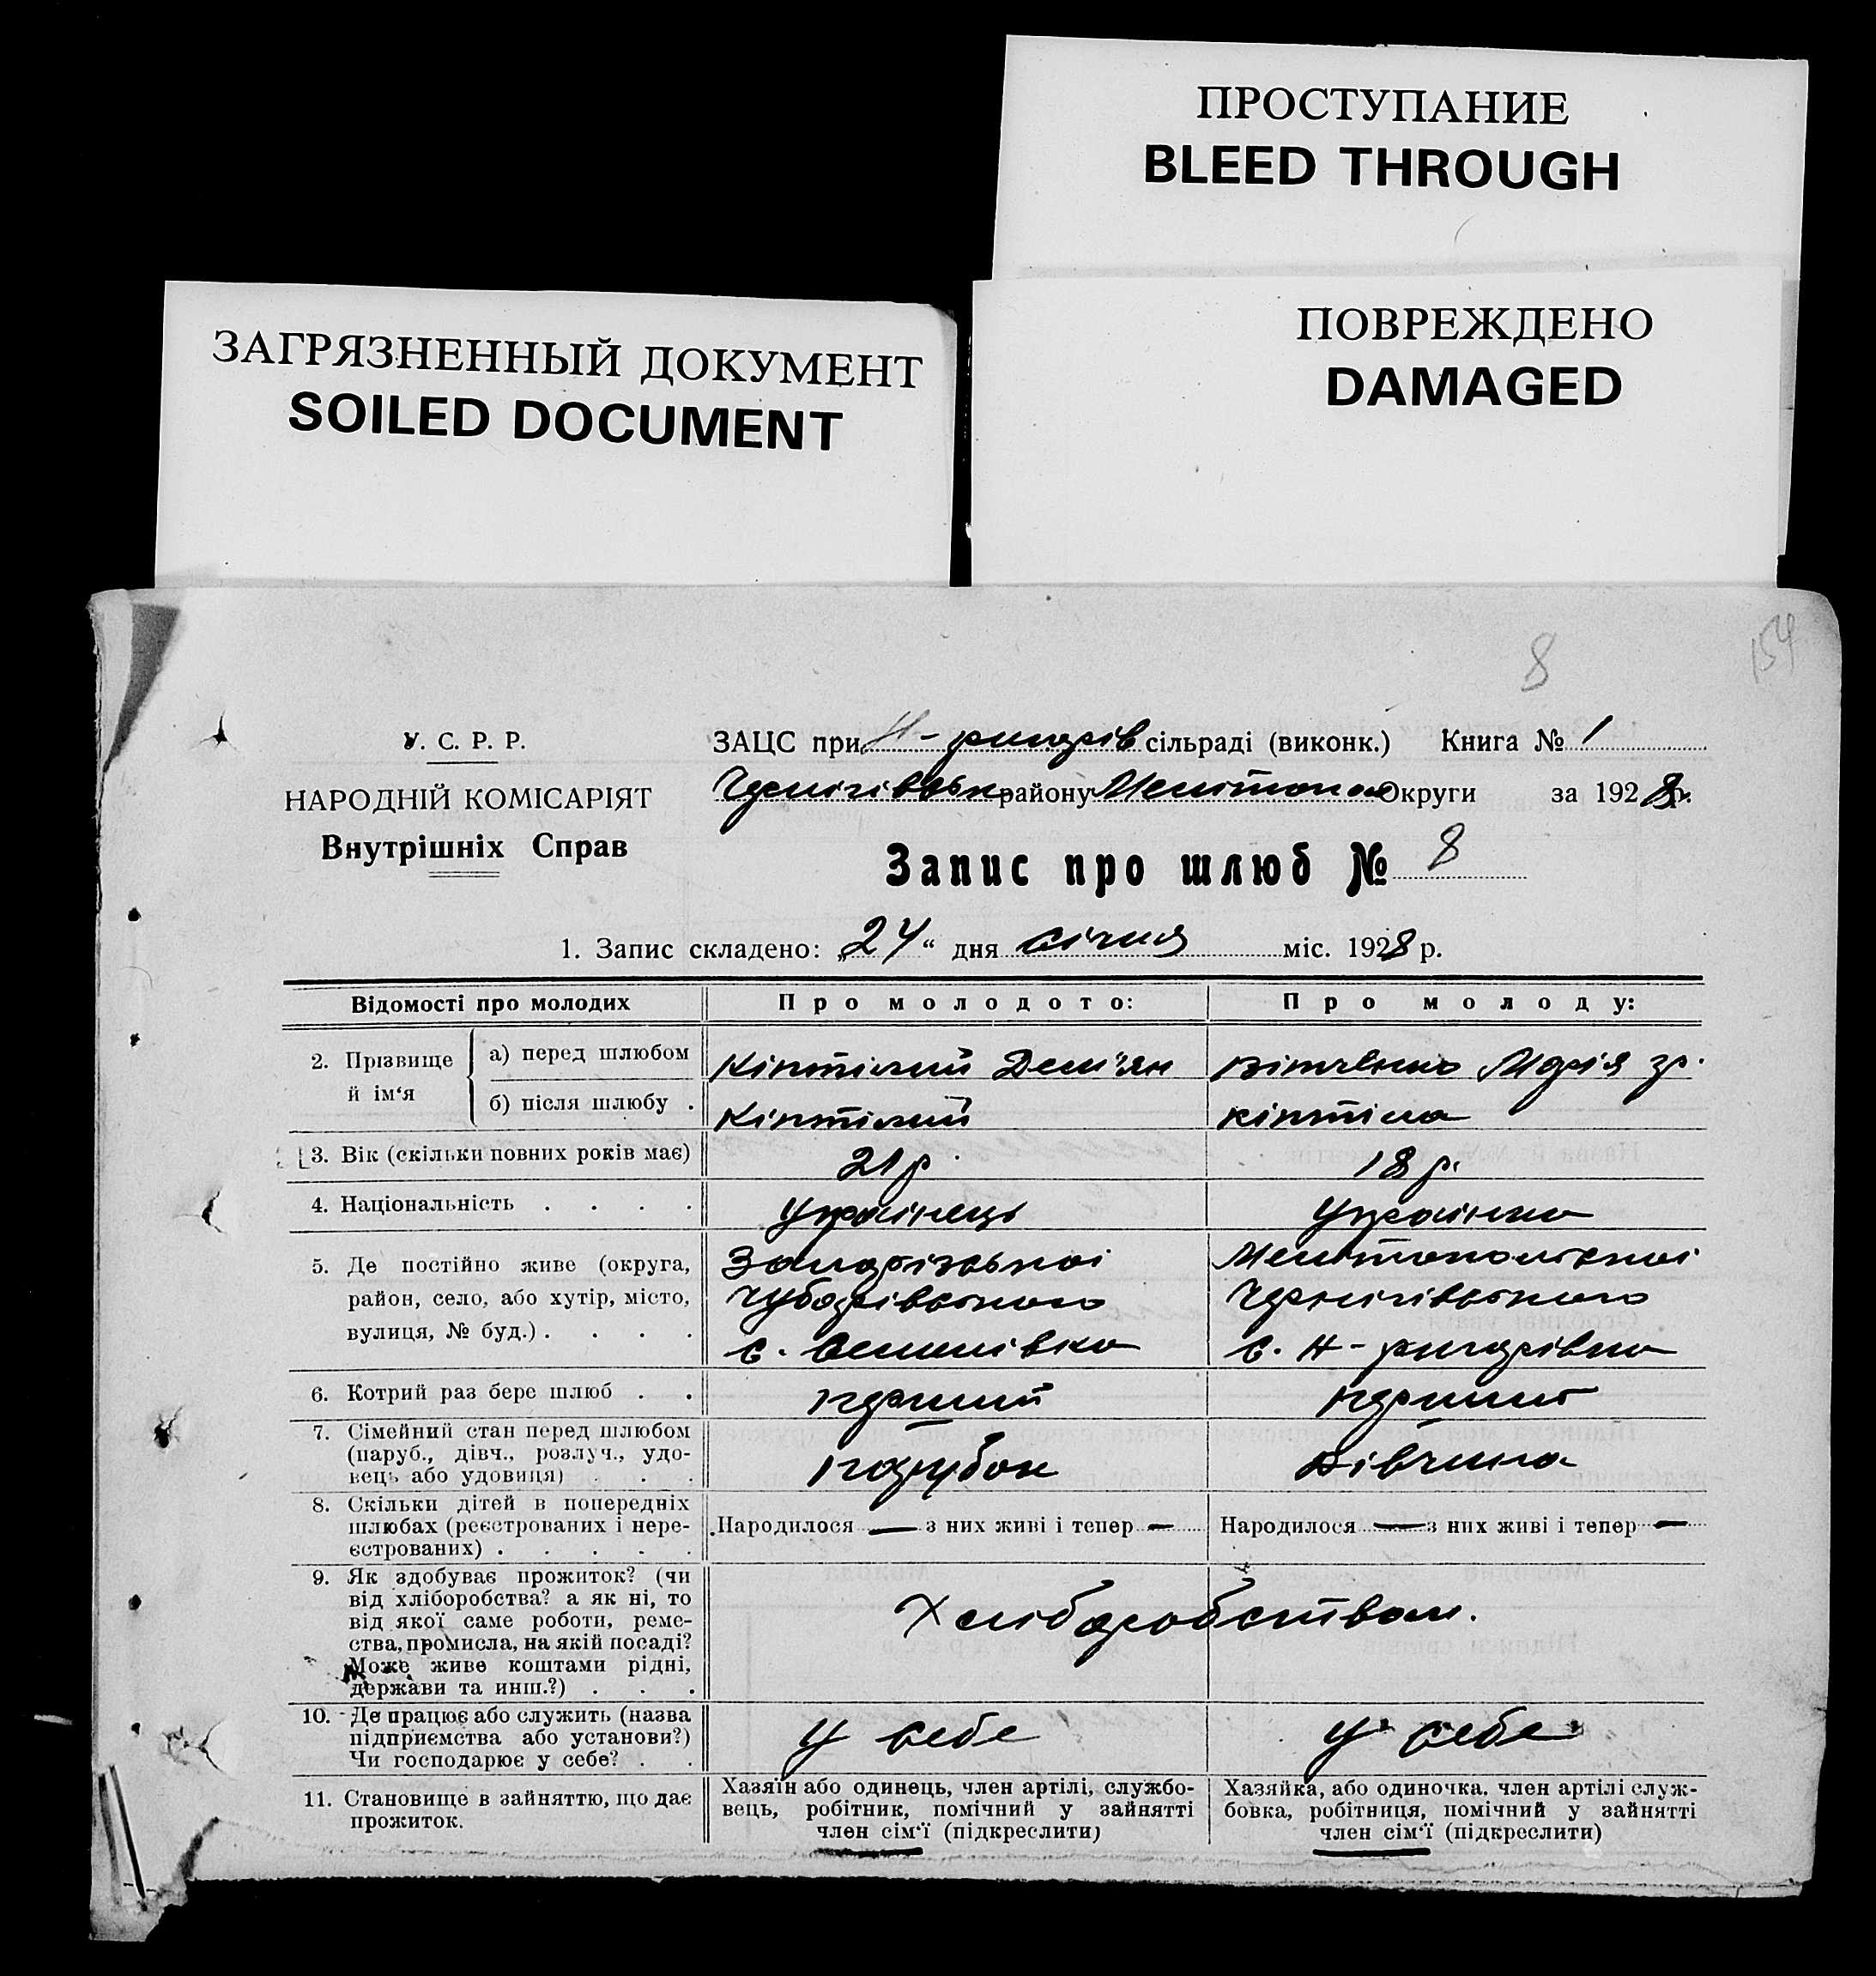 ПРОСТУПАНИЕ
BLEED THROUGH
ЗАГРЯЗНЕННЫЙ ДОКУМЕНТ
SOILED DOCUMENT
ПОВРЕЖДЕНО
DAMAGED
8
154
У. С. Р. Р.
НАРОДНІЙ КОМІСАРІЯТ
Внутрішніх Справ
ЗАЦС при Н-ригорів сільраді (виконк.) Книга № 1
Чернігівськ району Мелітополь Округи за 1928 р.
Запис про шлюб № 8
1. Запис складено: „24“ дня січня міс. 1928 р.
Відомості про молодих
Про молодого:
Про молоду:
2. Прізвище й ім‘я
а) перед шлюбом
Кіптілий Дем'ян
Вітченко Марія гр.
б) після шлюбу .
Кіптілий
Кіптіла
3. Вік (скільки повних років має)
21 р.
18 р.
4. Національність . . . .
Українець
Українка
5. Де постійно живе (округа,
район, село, або хутір, місто,
вулиця, № буд.) . . . .
Запорізької
Чубарівського
с. Осипівка
Мелітопольської
Чернігівського
с. Н-ригорівка
6. Котрий раз бере шлюб . .
перший
перший
7. Сімейний стан перед шлюбом
(паруб., дівч., розлуч., удо-
вець або удовиця) . . .
парубок
дівчина
8. Скільки дітей в попередніх
шлюбах (реєстрованих і нере-
єстрованих) . . . . .
Народилося — з них живі і тепер —
Народилося — з них живі і тепер —
9. Як здобуває прожиток? (чи
від хліборобства? а як ні, то
від якої саме роботи, реме-
ства, промисла, на якій посаді?
Може живе коштами рідні,
держави та инш.?) . . .
Хліборобством.
10. Де працює або служить (назва
підприємства або установи?)
Чи господарює у себе? . .
У себе
У себе
11. Становище в зайняттю, що дає
прожиток.
Хазяїн або одинець, член артілі, службо-
вець, робітник, помічний у зайнятті
член сім‘ї (підкреслити)
Хазяйка, або одиночка. член артілі служ-
бовка, робітниця, помічний у зайнятті
член сім‘ї (підкреслити)